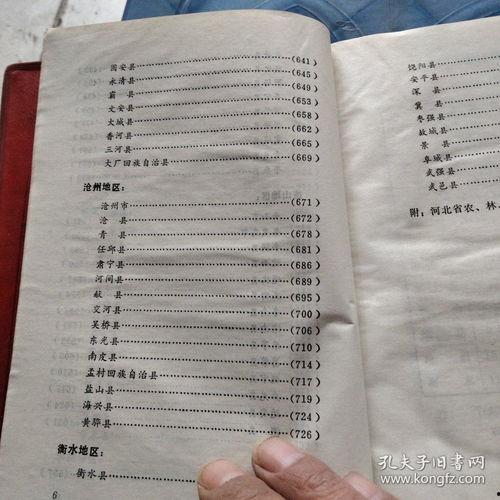 固安县(641)
永清县(645)
霸　县(649)
文安县(653)
大城县(658)
香河县(662)
三河县(665)
大厂回族自治县(669)
沧州地区：
沧州市(671)
沧　县(672)
青　县(678)
任邱县(681)
肃宁县(686)
河间县(689)
献　县(695)
交河县(700)
吴桥县(706)
东光县(710)
南皮县(714)
孟村回族自治县(717)
盐山县(719)
海兴县(724)
黄骅县(726)
衡水地区：
衡水县
6
饶阳县
安平县
深　县
冀　县
枣强县
故城县
景　县
阜城县
武强县
武邑县
附：河北省农、林、
孔夫子旧书网
book.kongfz.com